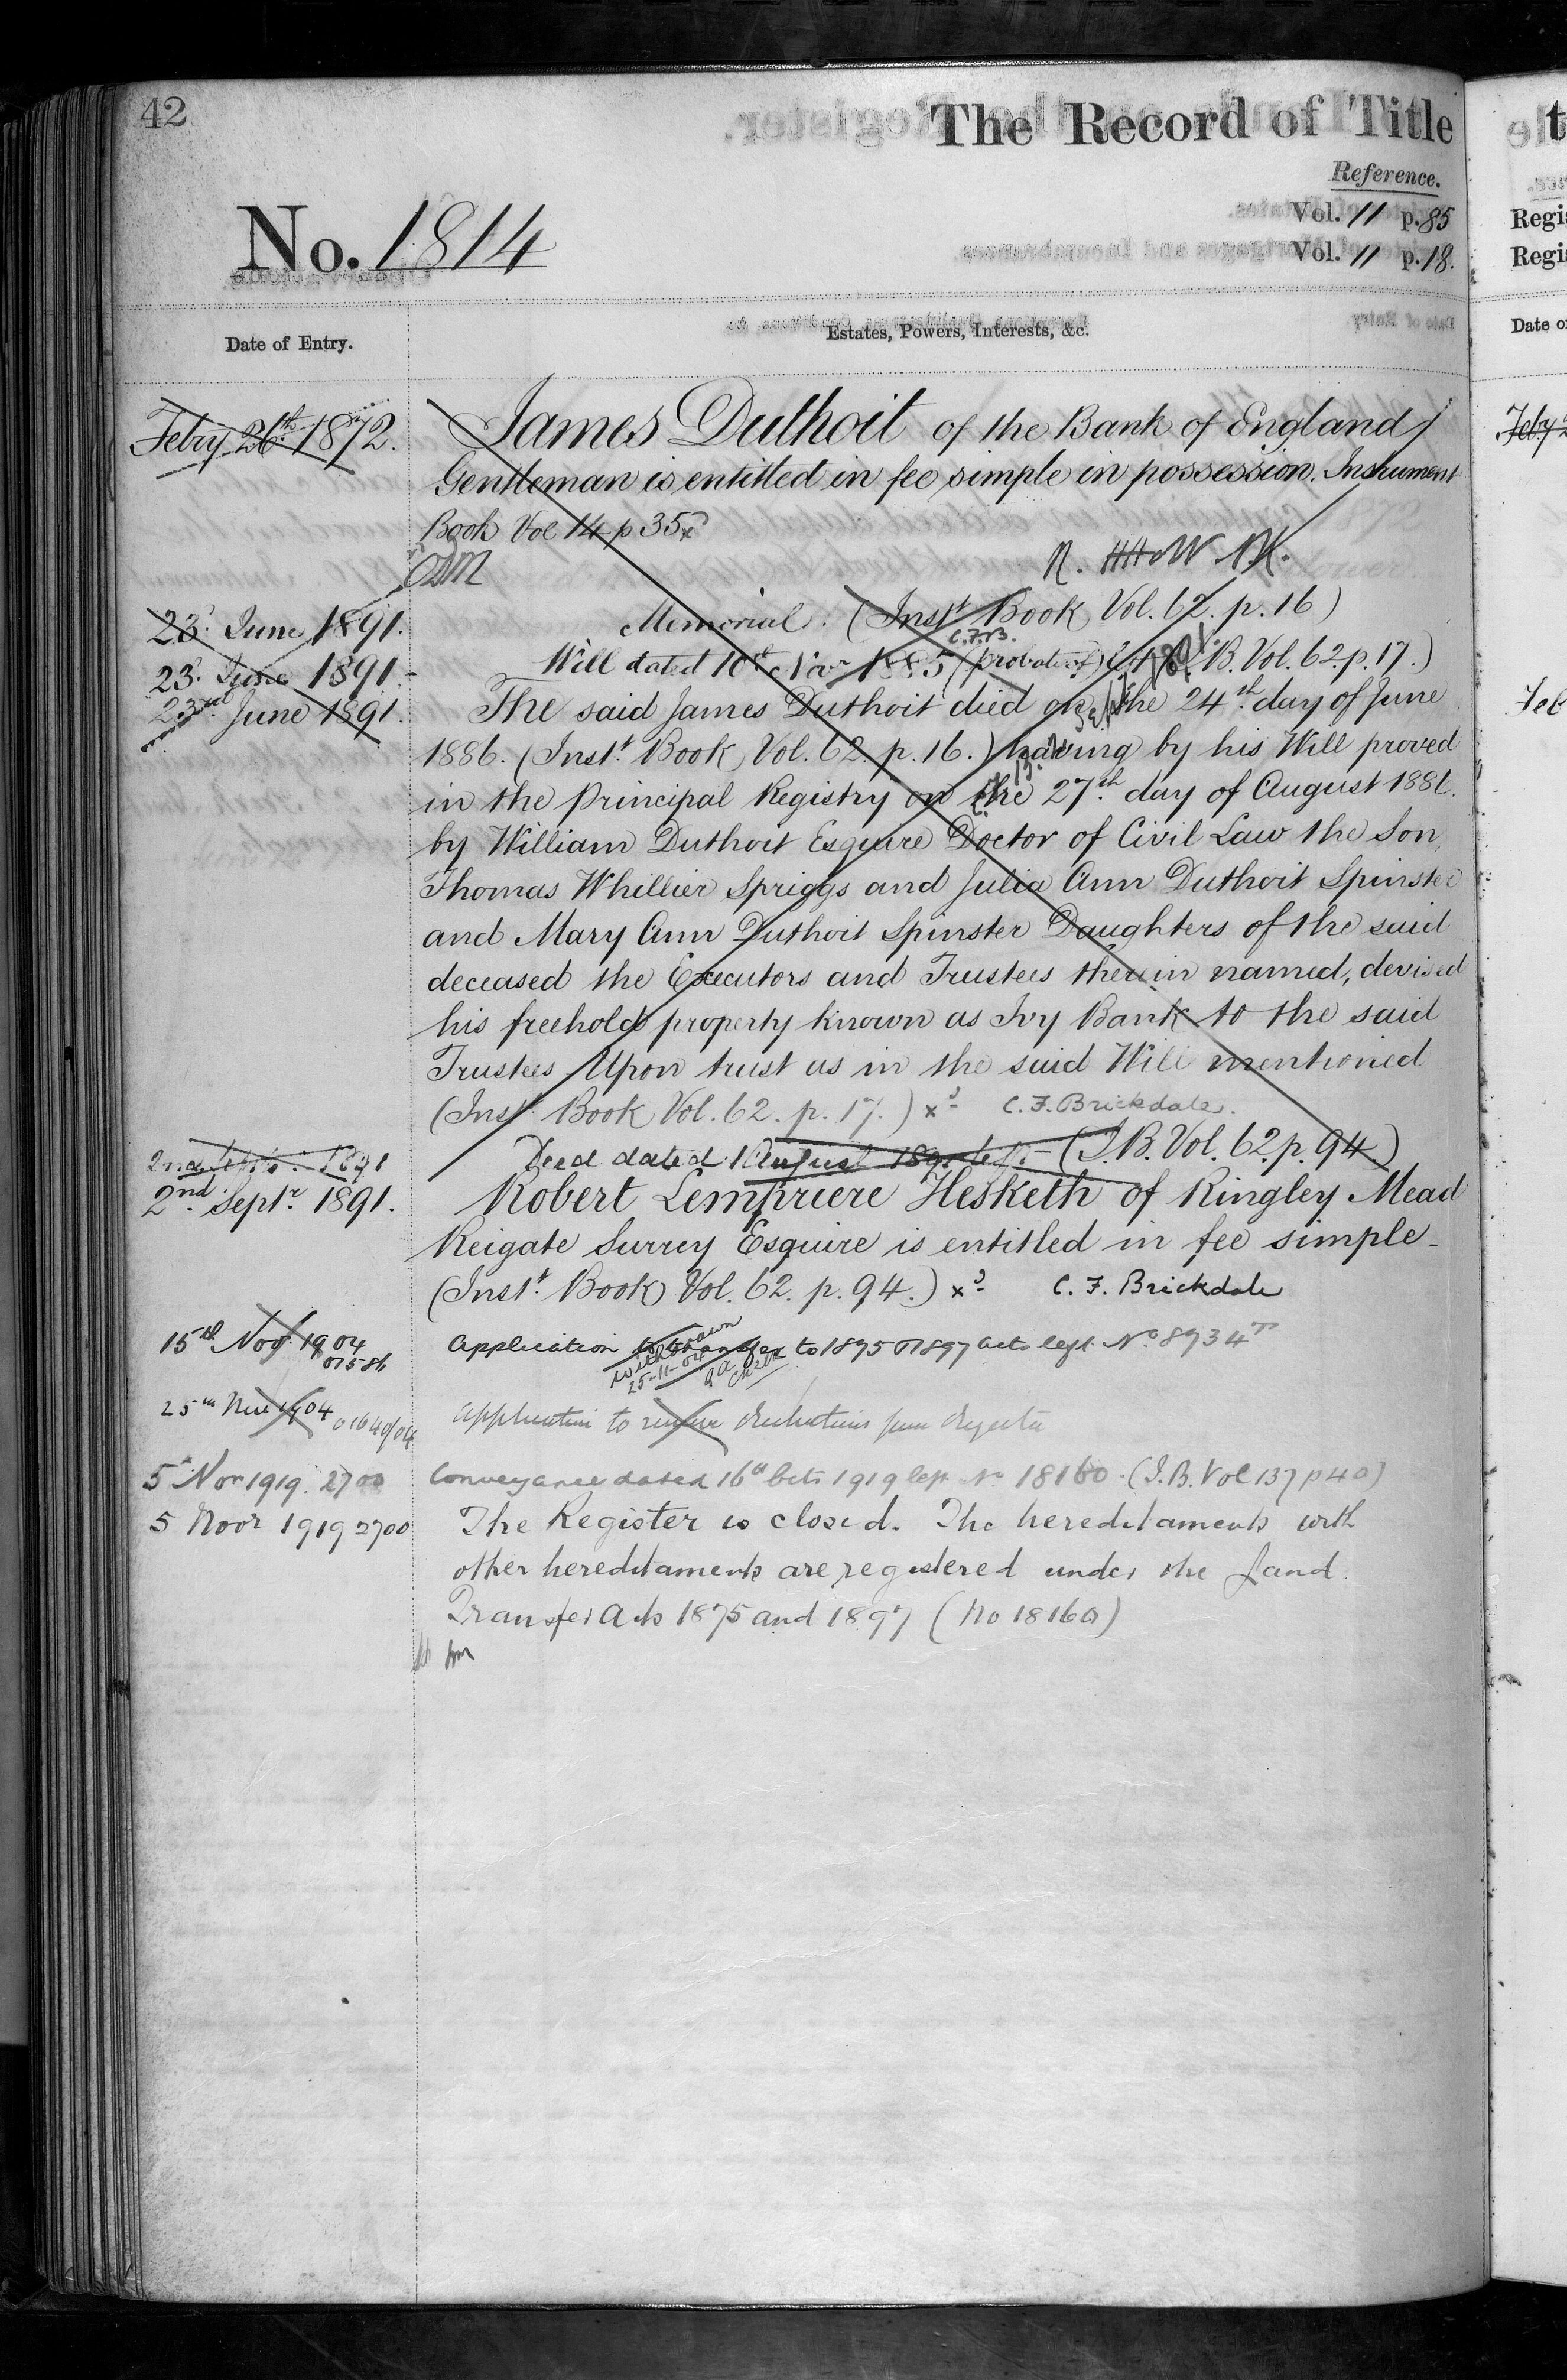 42
The Record of Title
Reference.
No. 1814
Vol. 11 p. 85
Vol. 11 p. 18.
Date of Entry.
Estates, Powers, Interests, &c.
Febry 26th 1872.
James Duthoit of the Bank of England
Gentleman is entitled in fee simple in possession. Instrument
Book Vol 14 p 35
23d June 1891.
Memorial. (Inst. Book Vol. 62. p. 16)
C.F.B.
23d June 1891.
Will dated 10th Novr 1885 (probate of) B. Vol. 62. p. 17.)
23rd June 1891.
The said James Duthoit died on the 24th day of June
1886. (Inst. Book Vol. 62. p. 16.) having by his Will proved
in the Principal Registry on the 27th day of August 1886.
by William Duthoit Esquire Doctor of Civil Law the Son,
Thomas Whillier Spriggs and Julia Ann Duthoit Spinster
and Mary Ann Duthoit Spinster Daughters of the said
deceased the Executors and Trustees therein named, devised
his freehold property known as Ivy Bank to the said
Trustees Upon trust as in the said Will mentioned
(Inst. Book Vol. 62. p. 17.) xd C. F. Brickdale.
2nd Septr 1891
Deed dated 1 August 1891 left (I.B. Vol. 62. p. 94.)
2nd Septr 1891.
Robert Lempriere Hesketh of Ringley Mead
Reigate Surrey Esquire is entitled in fee simple
(Inst. Book Vol. 62. p. 94.) xd C. F. Brickdale
15th Novr 1904
01586
Application to transfer to 1875 & 1897 acts left No 8934
withdrawn
25-11-04
25th Nov 1904 01640/04
Application to remove from Register
5 Nov 1919. 2700
Conveyance dated 16th Octr 1919 left No 18160 (I.B. Vol 137 p 40)
5 Novr 1919 2700
The Register is closed. The hereditaments with
other hereditaments are registered under the Land
Transfer Acts 1875 and 1897 (No 18160)